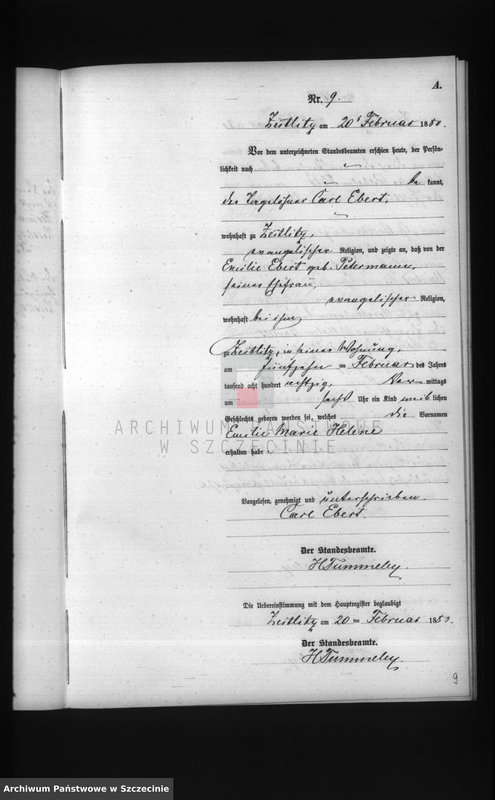 A.
Nr. 9.
Zeitlitz am 20t Februar 1880.
Vor dem unterzeichneten Standesbeamten erschien heute, der Persön-
lichkeit nach
be kannt,
der Tagelöhner Carl Ebert,
wohnhaft zu Zeitlitz,
evangelischer Religion, und zeigte an, daß von der
Emilie Ebert geb. Petermann,
seiner Ehefrau,
evangelischer Religion,
wohnhaft bei ihm
zu Zeitlitz, in seiner Wohnung,
am fünfzehn ten Februar des Jahres
tausend acht hundert achtzig, Vor mittags
um Uhr ein Kind weib lichen
Geschlechts geboren worden sei, welches die Vornamen
Emilie Marie Helene
erhalten habe.
ARCHIWUM PAŃSTWOWE
W SZCZECINIE
Vorgelesen, genehmigt und unterschrieben.
Carl Ebert.
Der Standesbeamte.
H Tummeley.
Die Uebereinstimmung mit dem Hauptregister beglaubigt
Zeitlitz am 20 ten Februar 1880.
Der Standesbeamte.
H Tummeley.
9
Archiwum Państwowe w Szczecinie